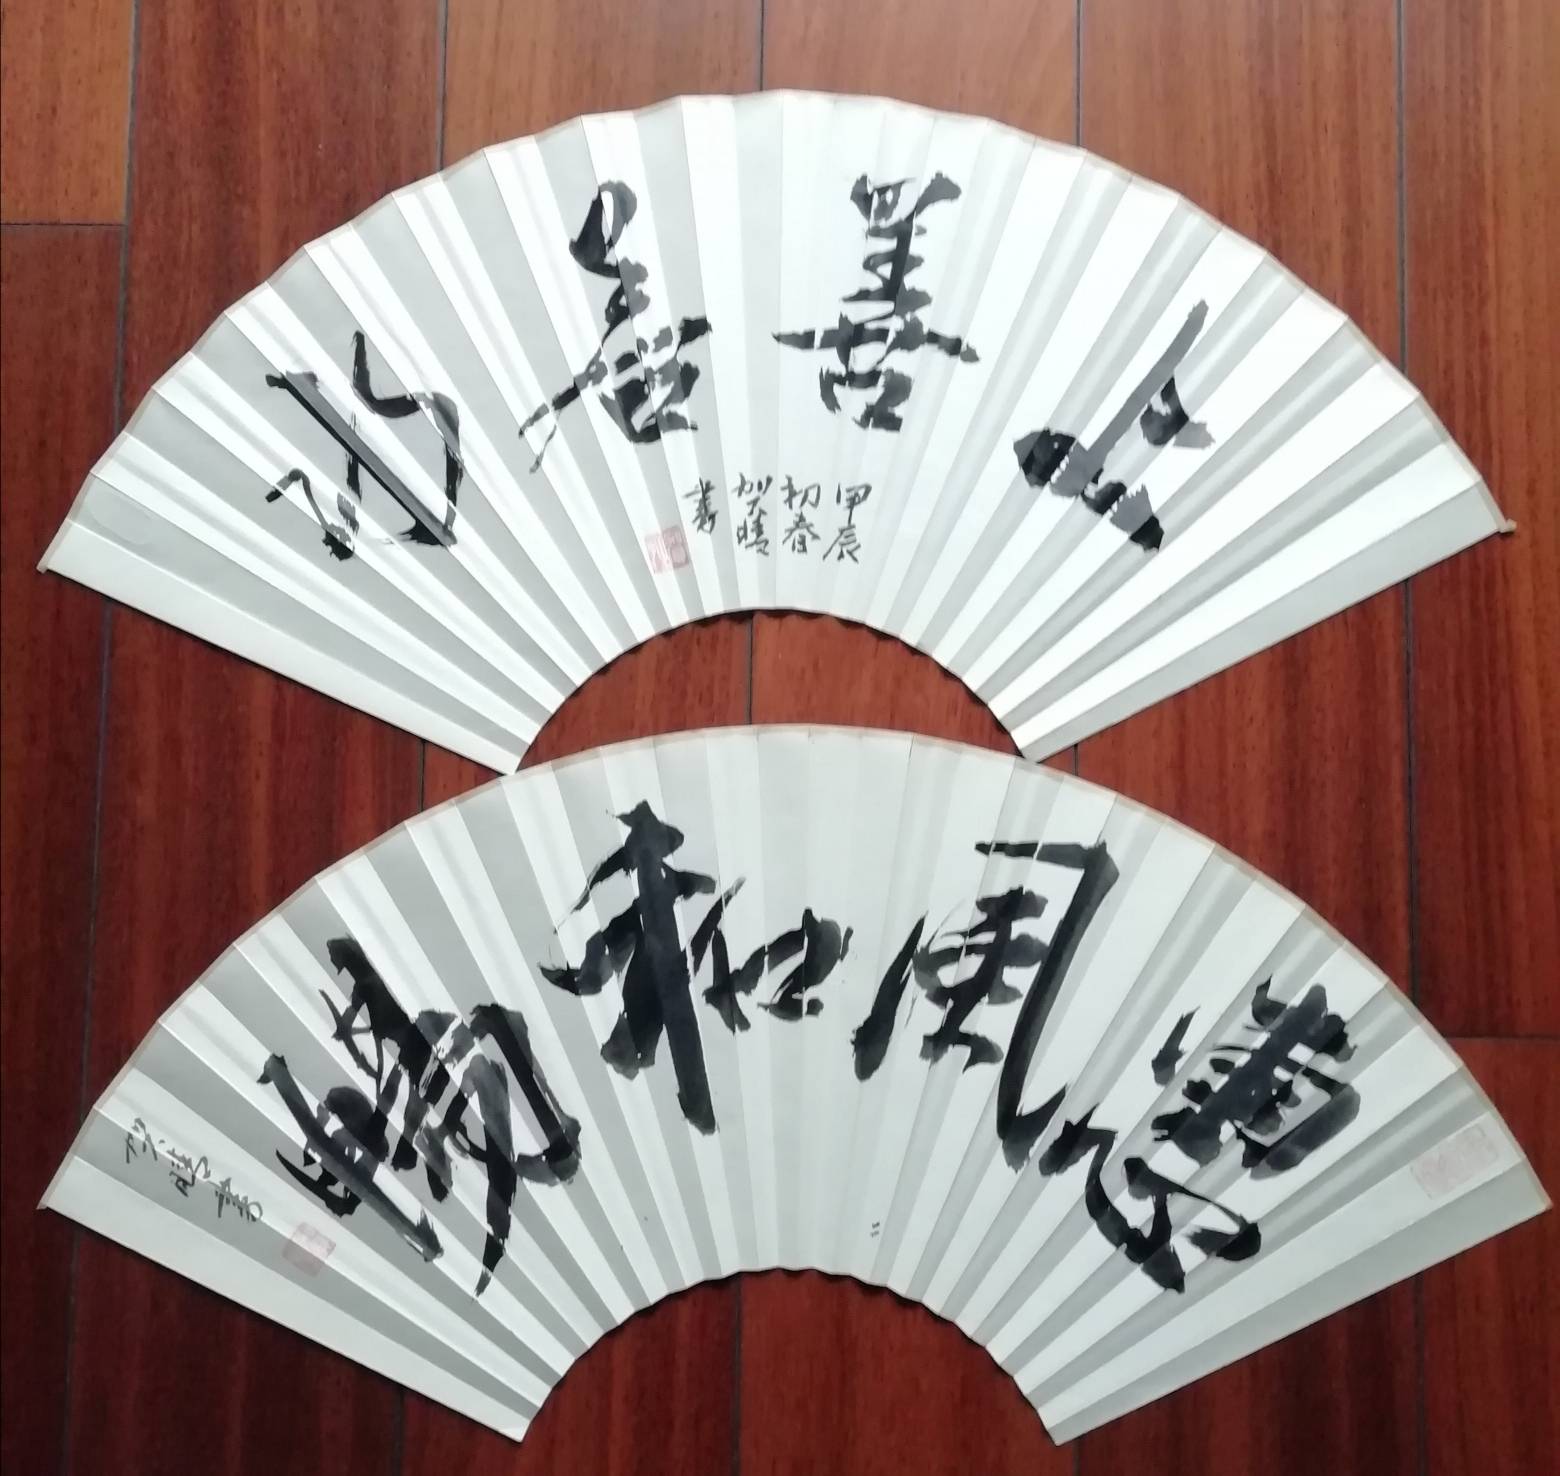 上善若水
甲辰
初春
書
惠風和暢
書